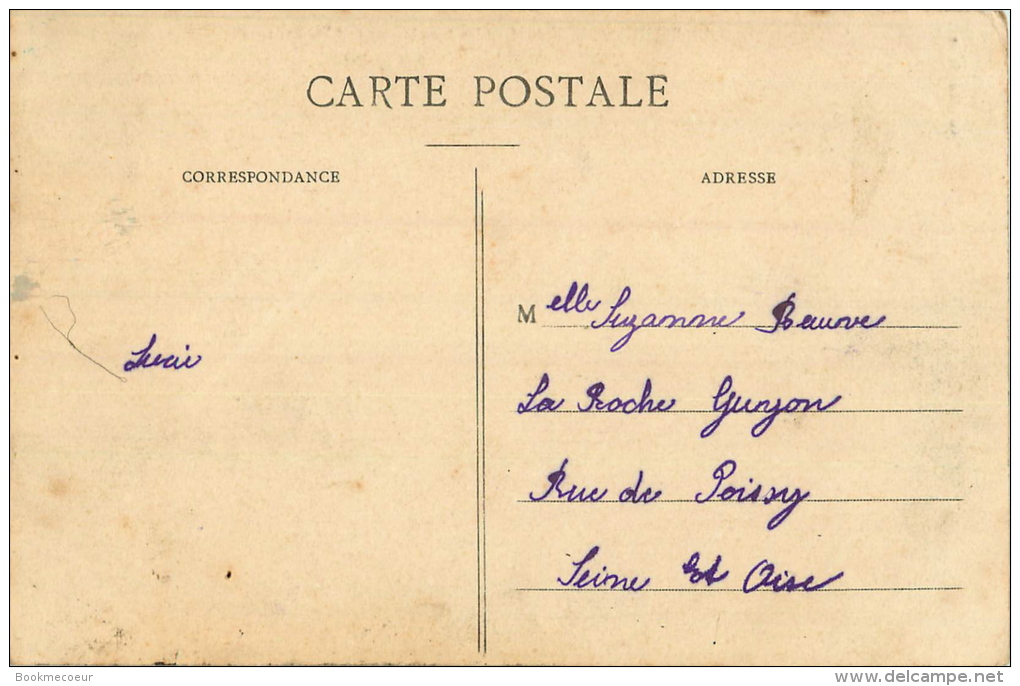 CARTE POSTALE
CORRESPONDANCE
ADRESSE
Melle Suzanne Beauve
La Roche Guyon
Lucie
Rue de Poissy
Seine Et Oise
Bookmecoeur
www.delcampe.net